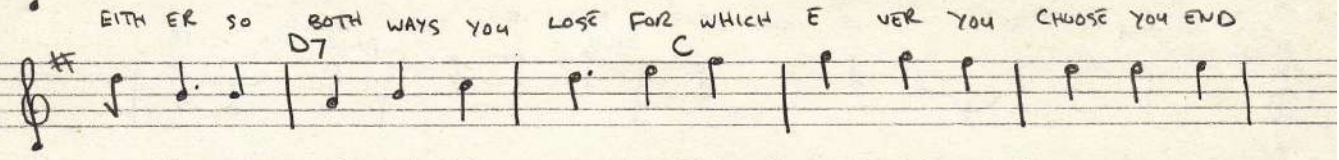 EITH ER SO BOTH WAYS YOU LOSE FOR WHICH E VER YOU CHOOSE YOU END
D7 C